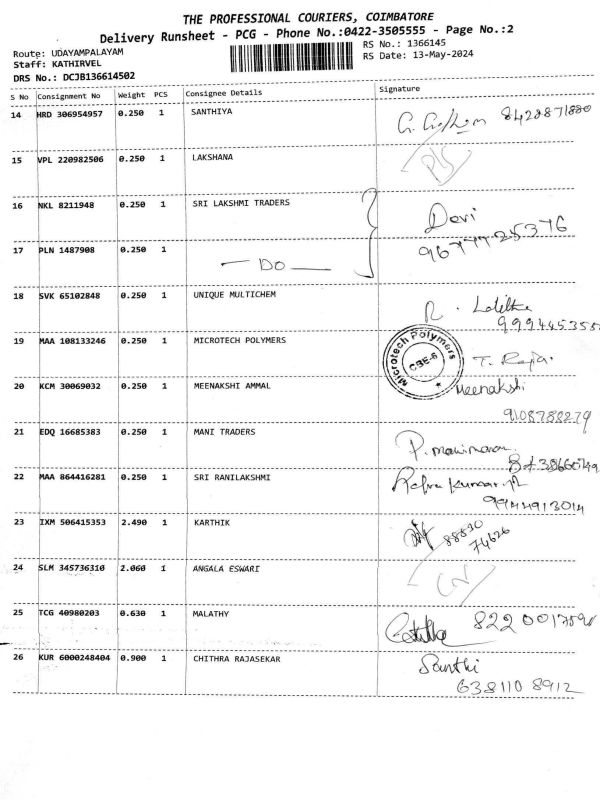 THE PROFESSIONAL COURIERS, COIMBATORE
Delivery Runsheet - PCG - Phone No.:0422-3505555 - Page No.:2
Route: UDAYAMPALAYAM
Staff: KATHIRVEL
DRS No.: DCJB136614502
RS No.: 1366145
RS Date: 13-May-2024
S No Consignment No Weight PCS Consignee Details Signature
14 HRD 306954957 0.250 1 SANTHIYA
15 VPL 220982506 0.250 1 LAKSHANA
16 NKL 8211948 0.250 1 SRI LAKSHMI TRADERS Devi
17 PLN 1487908 0.250 1 — DO — 9677725376
18 SVK 65102848 0.250 1 UNIQUE MULTICHEM R. Lalitha
19 MAA 108133246 0.250 1 MICROTECH POLYMERS Microtech Polymers CBE-6 T. Raja.
20 KCM 30069032 0.250 1 MEENAKSHI AMMAL Meenakshi
9108788279
21 EDQ 16685383 0.250 1 MANI TRADERS P. manimaran
22 MAA 864416281 0.250 1 SRI RANILAKSHMI
9944913014
23 IXM 506415353 2.490 1 KARTHIK 88830
74626
24 SLM 345736310 2.060 1 ANGALA ESWARI
25 TCG 40980203 0.630 1 MALATHY
26 KUR 6000248404 0.900 1 CHITHRA RAJASEKAR Santhi
6381108912